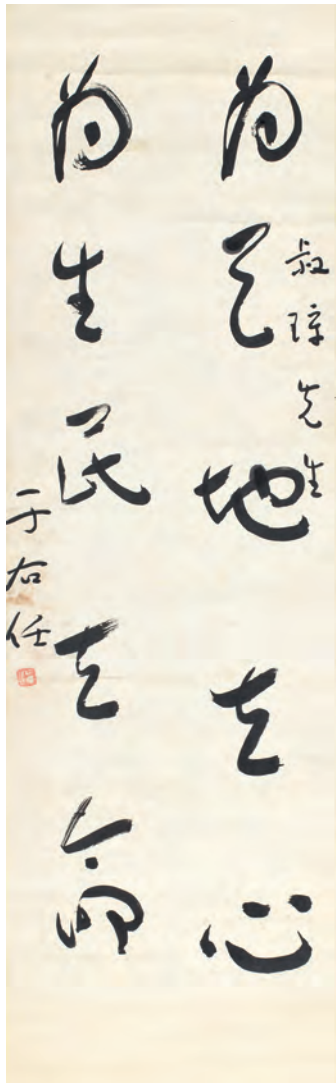 為天地立心
叔璋先生
為生民立命
于右任